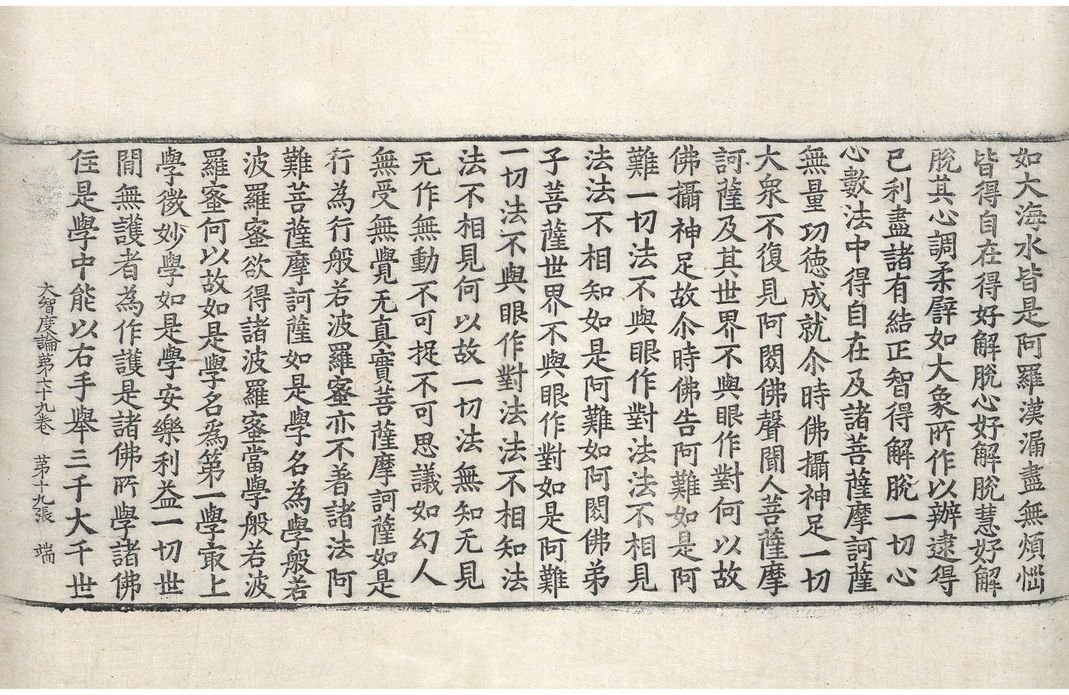 如大海水皆是阿羅漢漏盡無煩惱
皆得自在得好解脫心好解脫慧好解
脫其心調柔譬如大象所作以辦逮得
已利盡諸有結正智得解脫一切心
心數法中得自在及諸菩薩摩訶薩
無量功德成就尒時佛攝神足一切
大衆不復見阿閦佛聲聞人菩薩摩
訶薩及其世界不與眼作對何以故
佛攝神足故尒時佛告阿難如是阿
難一切法不與眼作對法法不相見
法法不相知如是阿難如阿閦佛弟
子菩薩世界不與眼作對如是阿難
一切法不與眼作對法法不相知法
法不相見何以故一切法無知无見
无作無動不可捉不可思議如幻人
無受無覺无真實菩薩摩訶薩如是
行為行般若波羅蜜亦不著諸法阿
難菩薩摩訶薩如是學名為學般若
波羅蜜欲得諸波羅蜜當學般若波
羅蜜何以故如是學名爲第一學㝡上
學微妙學如是學安樂利益一切世
間無護者為作護是諸佛所學諸佛
住是學中能以右手舉三千大千世
大智度論第七十九卷 第十九張 端